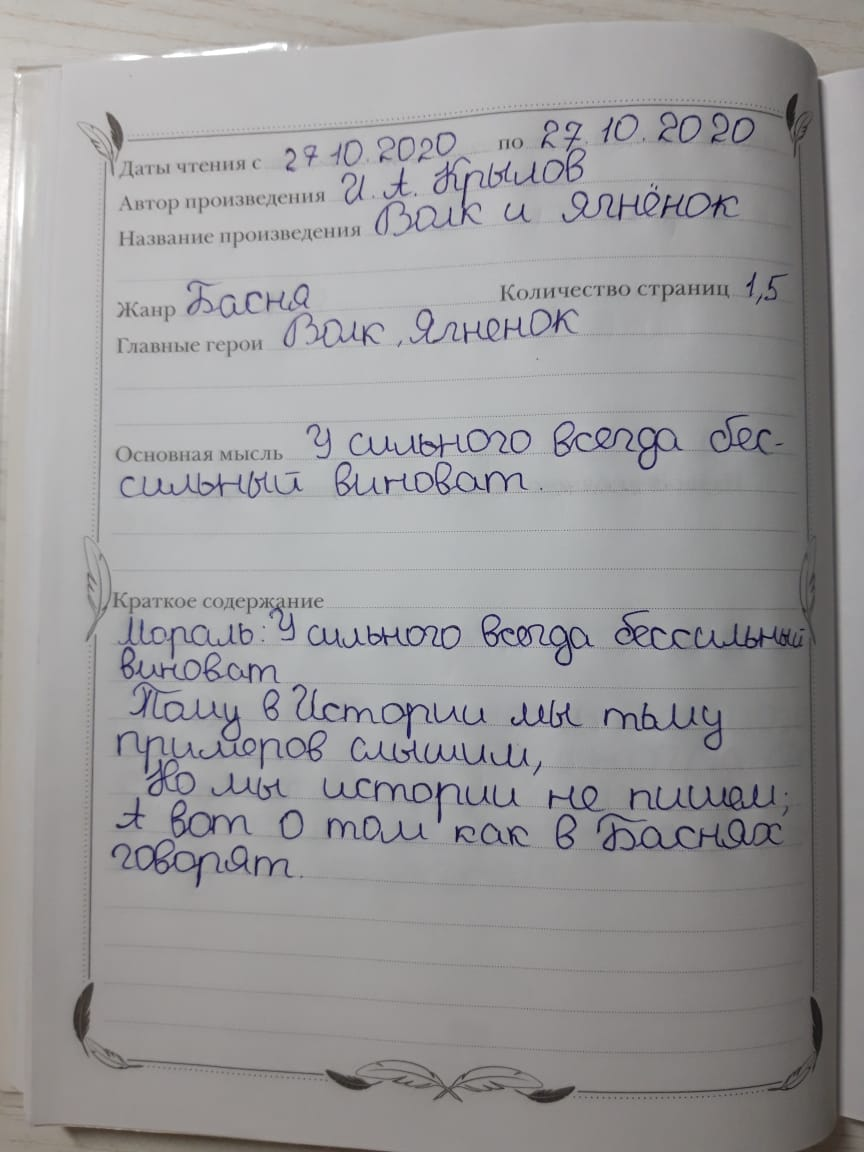 Даты чтения с 27 10.2020 по 27.10.2020
Автор произведения И. А. Крылов
Название произведения Волк и ягнёнок
Жанр Басня Количество страниц 1,5
Главные герои Волк, Ягненок
Основная мысль У сильного всегда бес-
сильный виноват.
Краткое содержание
Мораль: У сильного всегда бессильный
виноват
Тому в Истории мы тьму
примеров слышим,
Но мы истории не пишем;
А вот о том как в Баснях
говорят.